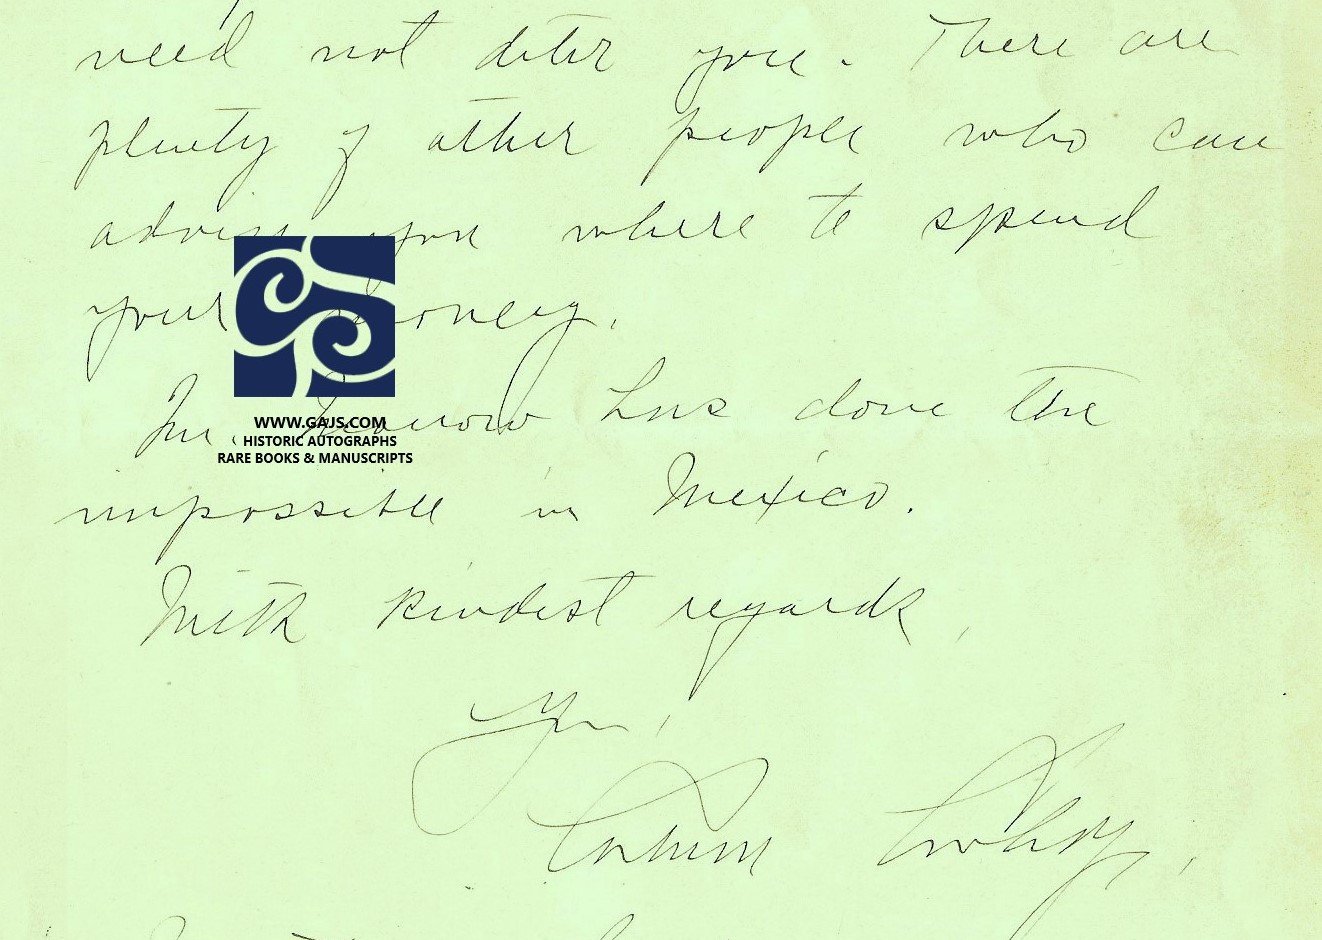 need not deter you. There are
plenty of other people who can
advise you where to spend
your money.
Mr. Morrow has done the
impossible in Mexico.
With kindest regards,
Yrs,
Calvin Coolidge
WWW.GAJS.COM
HISTORIC AUTOGRAPHS
RARE BOOKS & MANUSCRIPTS